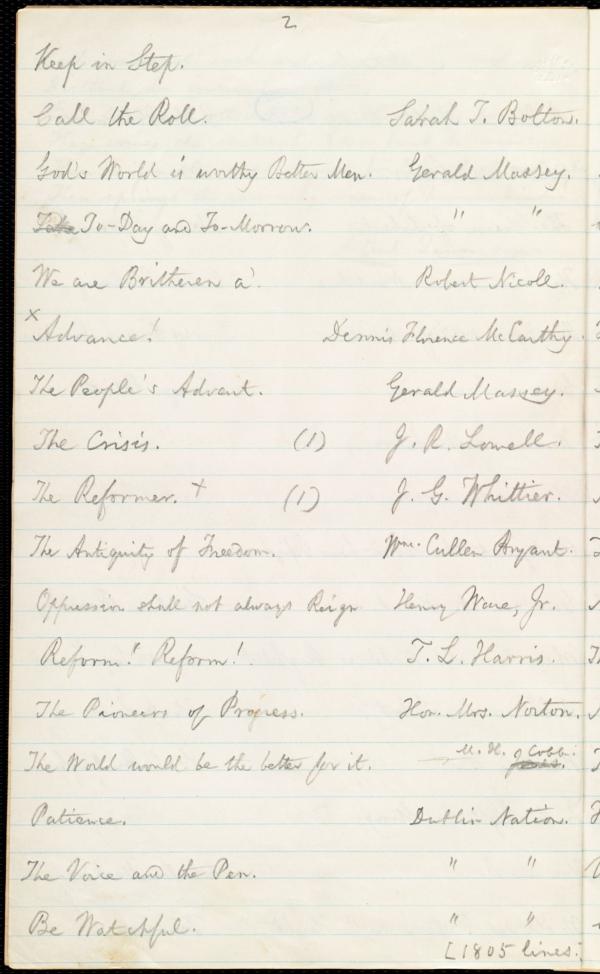 2
Keep in Step.
Call the Roll. Sarah T. Bolton.
God's World is worthy Better Men. Gerald Massey.
To-Day and To-Morrow. " "
We are Britheren a'. Robert Nicoll.
x Advance! Dennis Florence McCarthy.
The People's Advent. Gerald Massey.
The Crisis. (1) J. R. Lowell.
The Reformer. + (1) J. G. Whittier.
The Antiquity of Freedom. Wm. Cullen Bryant.
Oppression shall not always Reign Henry Ware, Jr.
Reform! Reform! T. L. Harris.
The Pioneers of Progress. Hon. Mrs. Norton.
The World would be the better for it. M. H. Cobb.
Patience. Dublin Nation.
The Voice and the Pen. " "
Be Watchful. " "
[1805 lines.]